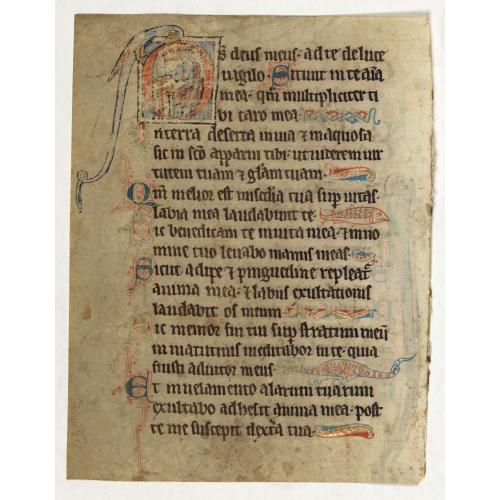 s deus meus. ad te de luce
uigilo. Sitiuit in te aīa
mea. qm̄ multipliciter ti
bi caro mea.
In terra deserta inuia ⁊ inaquosa
sic in sc̄o apparui tibi. ut uiderem uir
tutem tuam ⁊ gl̄am tuam.
Qm̄ melior est misc̄dia tua sup uitas.
labia mea laudabunt te.
ic benedicam te in uita mea. ⁊ in no
mine tuo leuabo manus meas.
Sicut adipe ⁊ pinguedine repleat᷑
anima mea. ⁊ labiis exultationis
laudabit os meum.
ic memor fui tui sup stratum meū
in matutinis meditabor in te. quia
fuisti adiutor meus.
Et in uelamento alarum tuarum
exultabo adhesit anima mea. post
te me suscepit dext̄a tua.